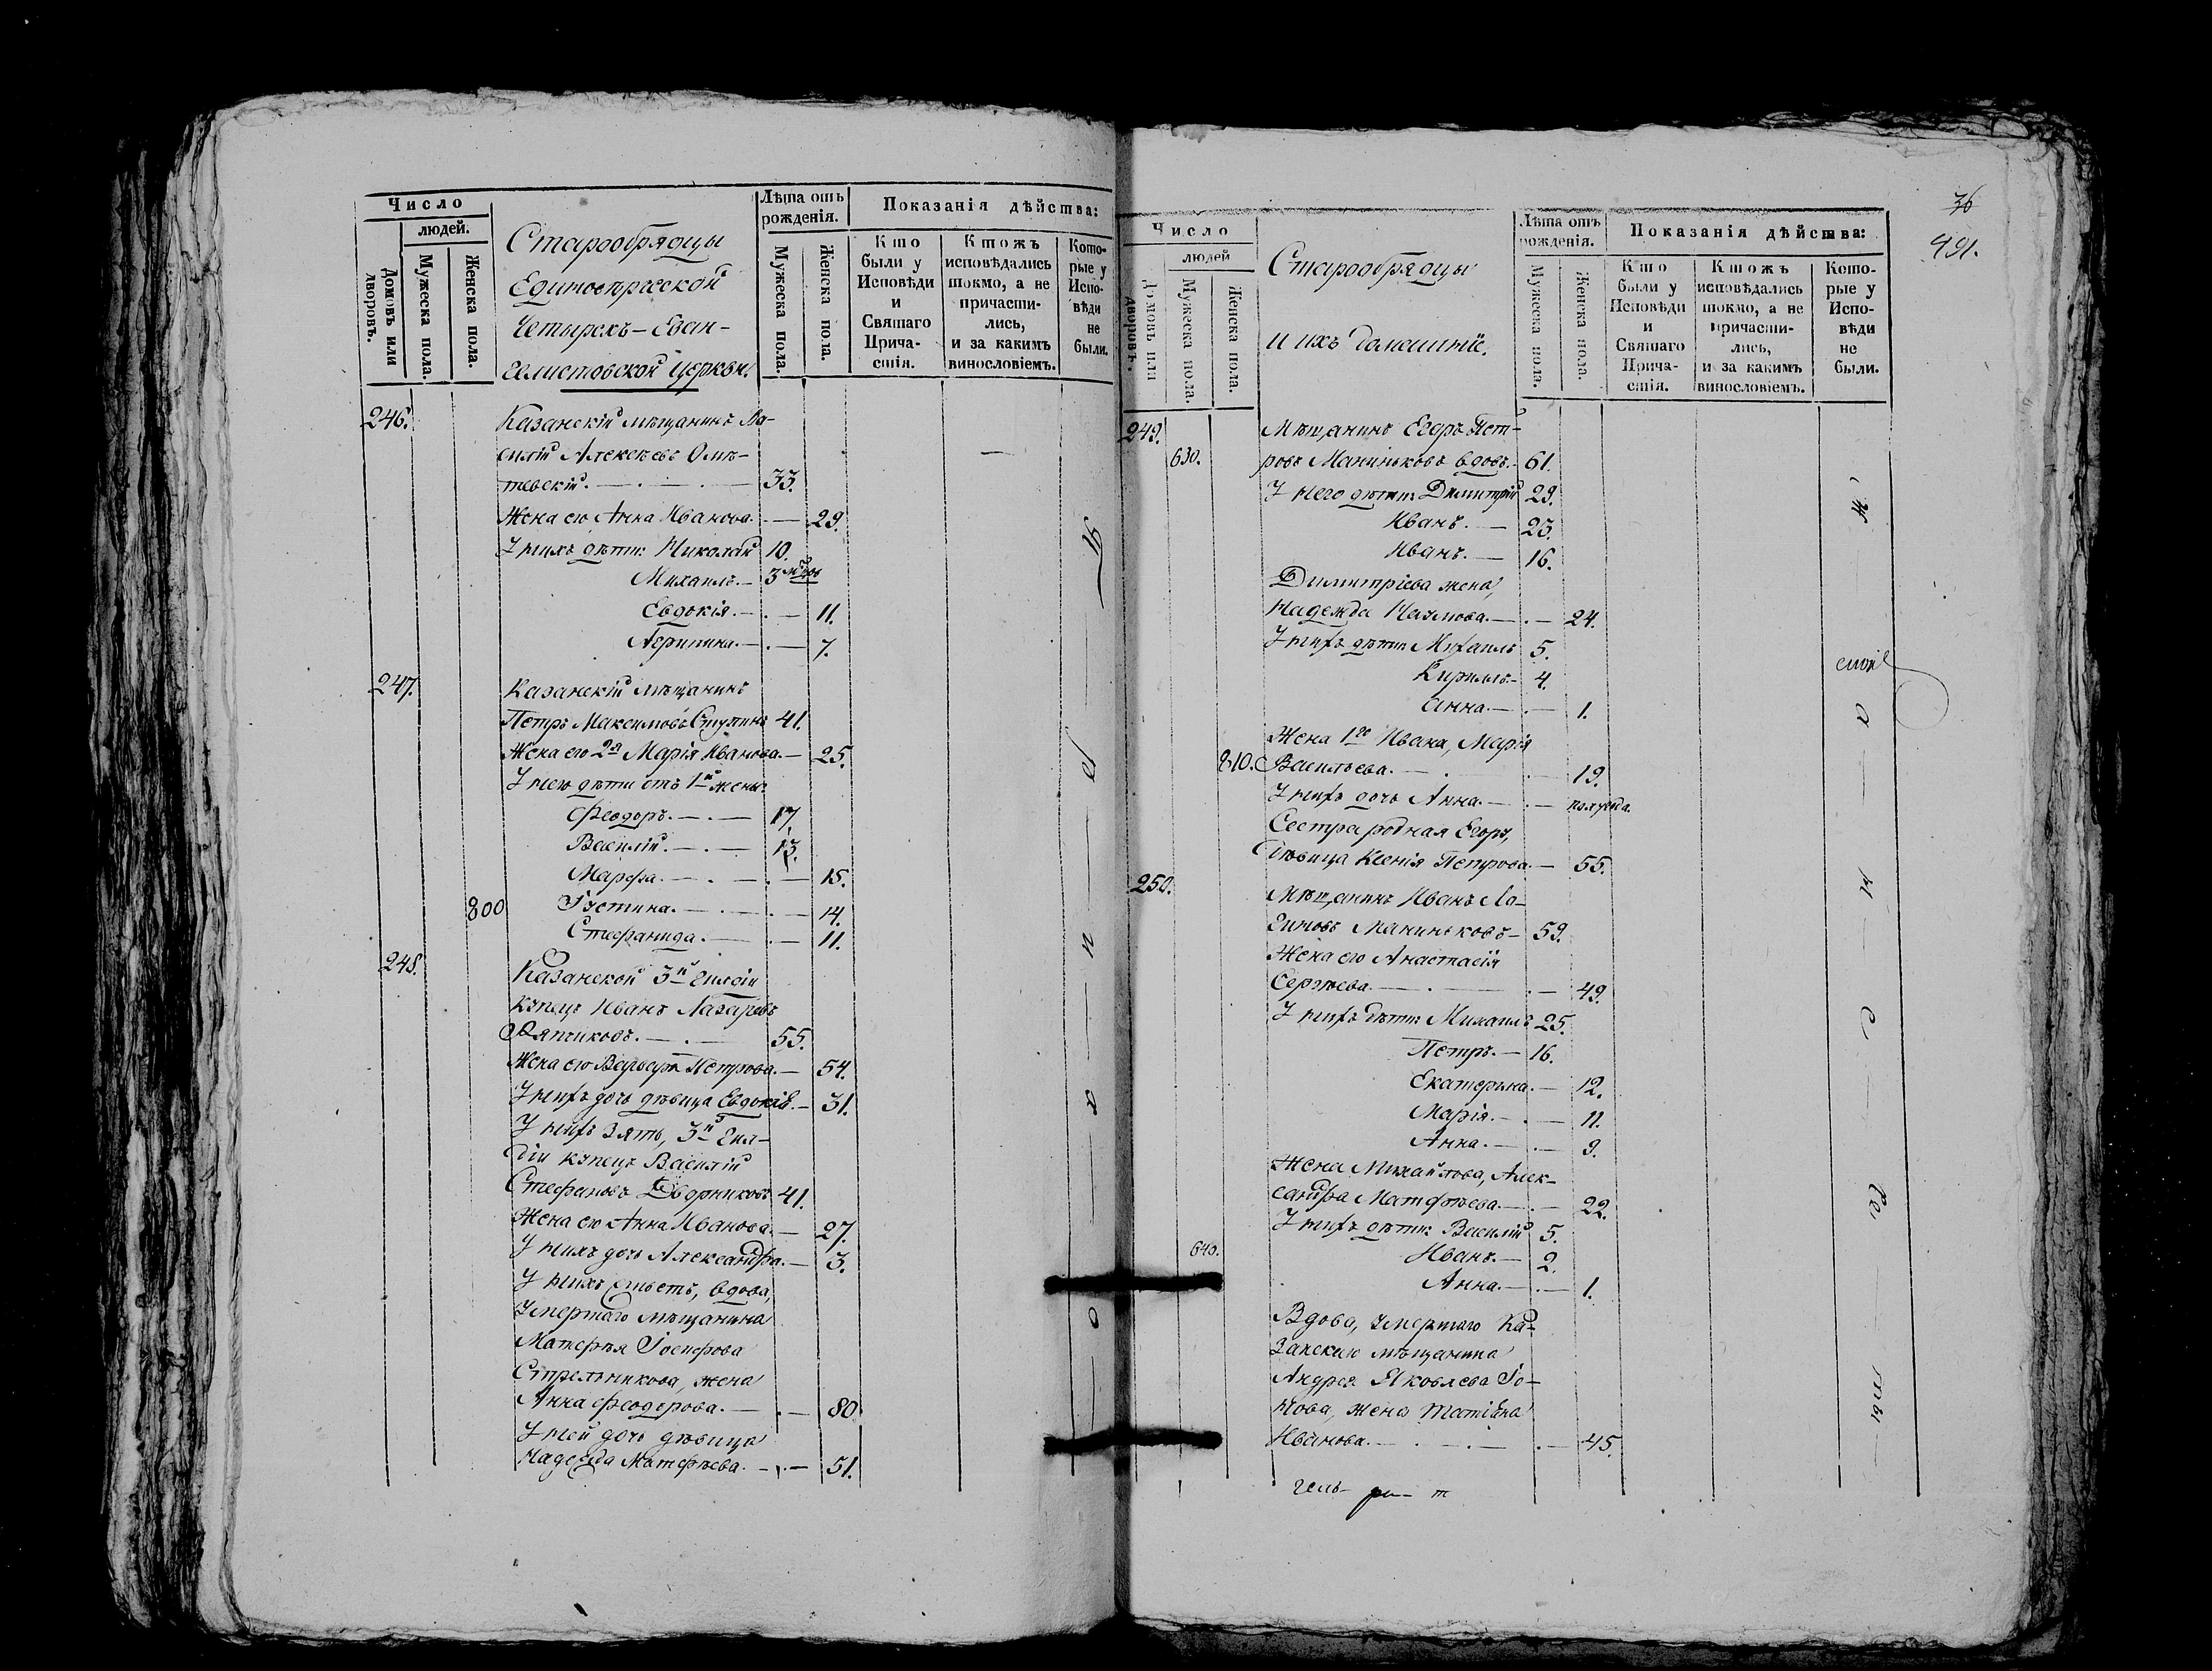 Число
людей.
Домовъ или дворовъ.
Мужеска пола.
Женска пола.
Старообрядцы
Единоверческой
Четырехъ-Еван-
гелистовской Церкви.
Лѣта отъ рожденія.
Мужеска пола.
Женска пола.
Показанія дѣйства:
Кто были у Исповѣди и Святаго Причастія.
Ктожъ исповѣдались токмо, а не причастились, и за какимъ винословіемъ.
Которые у Исповѣди не были.
246. Казанскій мѣщанинъ Ва-
силій Алексѣевъ
33.
Жена его Анна Иванова. 29.
У нихъ дѣти: Николай 10.
Михаилъ. 3
Евдокія. 11.
Агрипина. 7.
247. Казанскій мѣщанинъ
Петръ Максимовъ Ступинъ 41.
Жена его 2я Марія Иванова. 25.
У него дѣти отъ 1й жены:
Феодоръ. 17.
Василій. 13.
Марфа. 15.
800 Іустина. 14.
Стефанида. 11.
248. Казанской 3й гилдіи
купецъ Иванъ Лазаревъ
55.
Жена его Варвара Петрова. 54.
У нихъ дочь дѣвица Евдокія. 31.
У нихъ зять, 3й гил-
діи купецъ Василій
Стефановъ Дворниковъ 41.
Жена его Анна Иванова. 27.
У нихъ дочь Александра. 3.
У нихъ вдова,
умершаго мѣщанина
Матфѣя Іосифова
Стрельникова, жена
Анна Феодорова. 80
У ней дочь дѣвица
Надежда Матфѣева. 51.
36
491.
Число
людей
Домовъ или дворовъ.
Мужеска пола.
Женска пола.
Старообрядцы
и ихъ домашніе.
Лѣта отъ рожденія.
Мужеска пола.
Женска пола.
Показанія дѣйства:
Кто были у Исповѣди и Святаго Причастія.
Ктожъ исповѣдались токмо, а не причастились, и за какимъ винословіемъ.
Которые у Исповѣди не были.
249. Мѣщанинъ Егоръ Пет-
630. ровъ Маниньковъ вдовъ. 61.
У него дѣти: Димитрій 29.
Иванъ. 23.
Иванъ. 16.
Димитріева жена,
Надежда Наумова. 24.
У нихъ дѣти: Михаилъ 5.
Кириллъ. 4.
Анна. 1.
Жена 1го Ивана, Марія
810. Васильева. 19.
У нихъ дочь Анна. полгода.
Сестра родная Егору,
дѣвица Ксенія Петрова. 55.
250. Мѣщанинъ Иванъ Ло-
гиновъ Маниньковъ 59.
Жена его Анастасія
Сергѣева. 49.
У нихъ дѣти: Михаилъ 25.
Петръ. 16.
Екатерина. 12.
Марія. 11.
Анна. 9.
Жена Михайлова, Алек-
сандра Матфѣева. 22.
У нихъ дѣти: Василій 5.
640. Иванъ. 2.
Анна. 1.
Вдова, умершаго Ка-
занскаго мѣщанина
Андрея Яковлева Іо-
нова, жена Татіана
Иванова. 45.